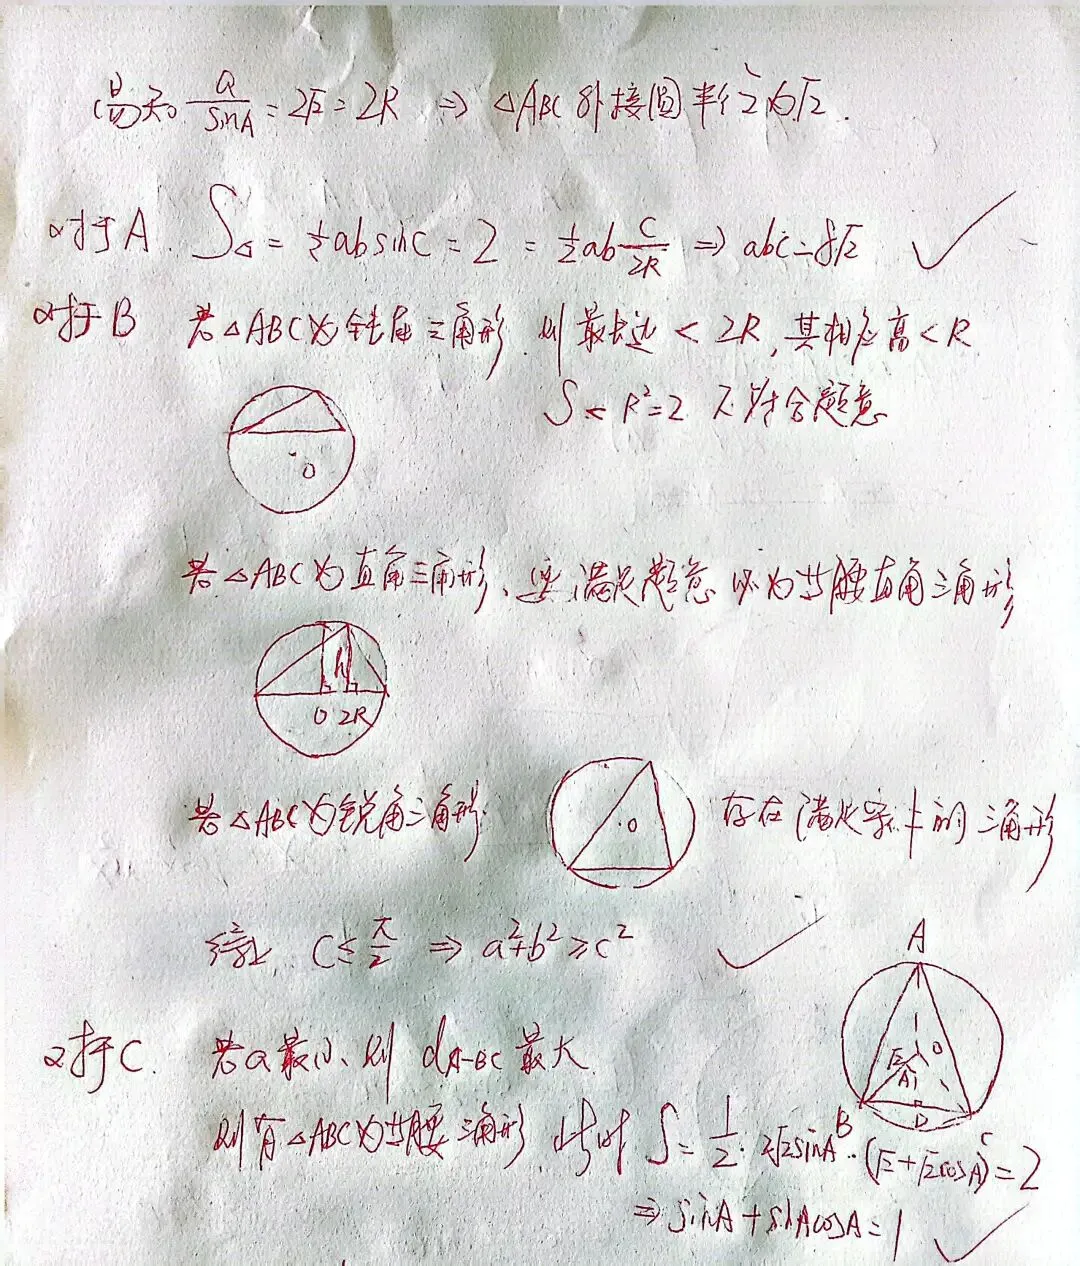 易知 a/sinA = 2√2 = 2R ⇒ △ABC 外接圆半径为√2.
对于A. S△ = ½absinC = 2 = ½ab c/2R ⇒ abc = 8√2 ✓
对于B 若△ABC为钝角三角形. 则最长边 < 2R, 其相应高 < R
S < R²=2 不符合题意
O
若△ABC为直角三角形, 要满足题意 必为等腰直角三角形
h
O 2R
若△ABC为锐角三角形. O 存在满足条件的三角形
综上 C ≤ π/2 ⇒ a²+b² ≥ c² ✓
A
对于C. 若a最小、则 d_A-BC 最大.
O √2 A
B D C
则有△ABC为等腰三角形. 此时 S = 1/2 · 2√2sinA · (√2+√2cosA) = 2
⇒ sinA + sinAcosA = 1 ✓